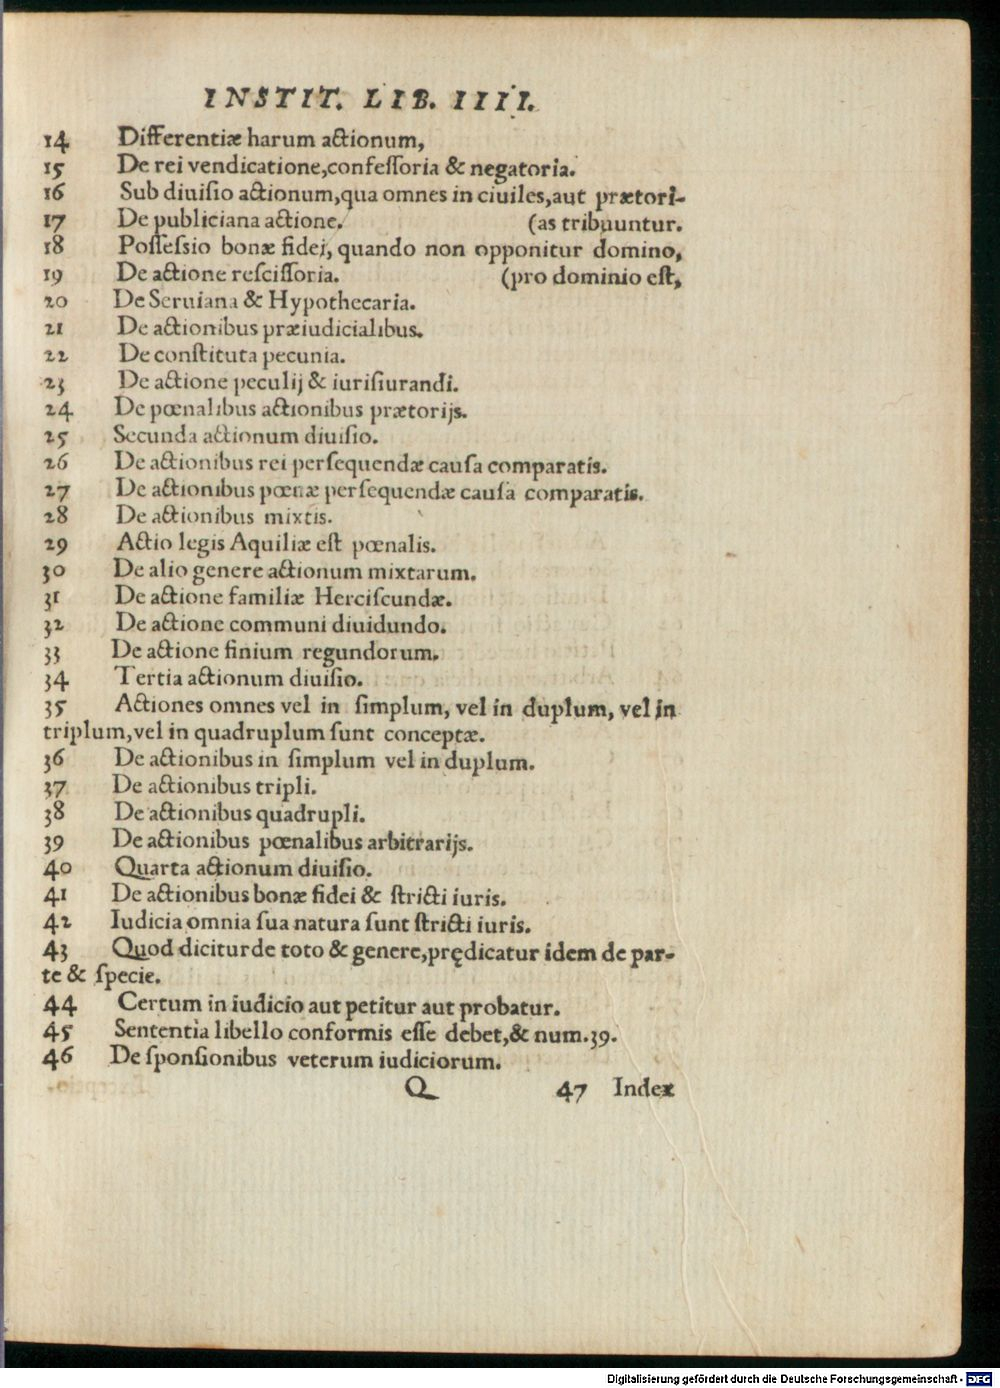 INSTIT. LIB. IIII.
14 Differentiæ harum actionum,
15 De rei vendicatione,confeſſoria & negatoria.
16 Sub diuiſio actionum,qua omnes in ciuiles,aut prætori-
17 De publiciana actione. (as tribuuntur.
18 Poſſeſſio bonæ fidei, quando non opponitur domino,
19 De actione reſciſſoria. (pro dominio eſt,
20 De Seruiana & Hypothecaria.
21 De actionibus præiudicialibus.
22 De conſtituta pecunia.
23 De actione peculij & iuriſiurandi.
24 De pœnalibus actionibus prætorijs.
25 Secunda actionum diuiſio.
26 De actionibus rei perſequendæ cauſa comparatis.
27 De actionibus pœnæ perſequendæ cauſa comparatis.
28 De actionibus mixtis.
29 Actio legis Aquiliæ eſt pœnalis.
30 De alio genere actionum mixtarum.
31 De actione familiæ Herciſcundæ.
32 De actione communi diuidundo.
33 De actione finium regundorum.
34 Tertia actionum diuiſio.
35 Actiones omnes vel in ſimplum, vel in duplum, vel in
triplum,vel in quadruplum ſunt conceptæ.
36 De actionibus in ſimplum vel in duplum.
37 De actionibus tripli.
38 De actionibus quadrupli.
39 De actionibus pœnalibus arbitrarijs.
40 Quarta actionum diuiſio.
41 De actionibus bonæ fidei & ſtricti iuris.
42 Iudicia omnia ſua natura ſunt ſtricti iuris.
43 Quod dicitur de toto & genere,prędicatur idem de par-
te & ſpecie.
44 Certum in iudicio aut petitur aut probatur.
45 Sententia libello conformis eſſe debet,& num.39.
46 De ſponſionibus veterum iudiciorum.
Q 47 Index
Digitalisierung gefördert durch die Deutsche Forschungsgemeinschaft - DFG